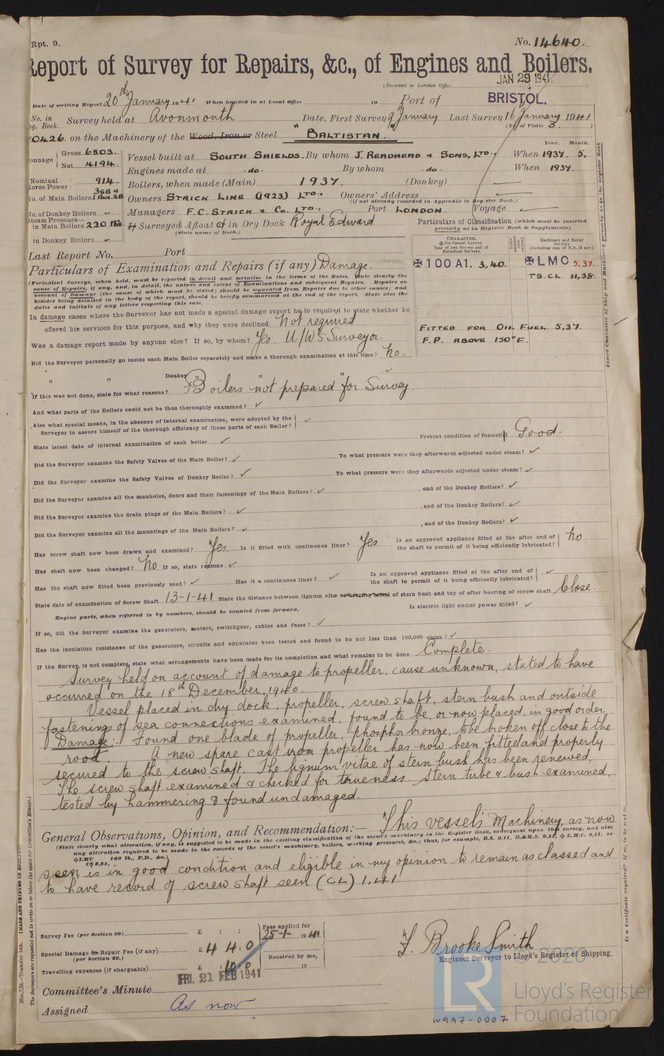 Rpt. 9.
No. 14640.
Report of Survey for Repairs, &c., of Engines and Boilers.
(Received at London Office
JAN 29 1941
Date of writing Report 20th January 1941 When handed in at Local Office 19 Port of BRISTOL.
No. in Reg. Book. Survey held at Avonmouth Date, First Survey 9 January Last Survey 16 January 1941
(No. of Visits 3.
70426. on the Machinery of the Wood, Iron or Steel "BALTISTAN."
Tonnage Gross 6803. Net 4194.
Vessel built at SOUTH SHIELDS. By whom J. READHEAD & SONS, LTD. When 1937. 5.
Engines made at - do - By whom - do - When 1937.
Nominal Horse Power 914
Boilers, when made (Main) 1937. (Donkey)
No. of Main Boilers
Owners STRICK LINE (1923) LTD. Owners' Address
(if not already recorded in Appendix to Register Book.)
No. of Donkey Boilers
Managers F.C. STRICK & CO. LTD. Port LONDON. Voyage
Steam Pressure in Main Boilers 220 lbs
in Donkey Boilers
If Surveyed Afloat or in Dry Dock Royal Edward
(State name of Dock.)
Particulars of Classification (which must be inserted precisely as in Register Book & Supplements).
+100A1. 3,40. +LMC 5,37.
TS.CL 11,38.
Last Report No. Port
Particulars of Examination and Repairs (if any) Damage.
FITTED FOR OIL FUEL. 5,37.
F.P. ABOVE 150°F.
In damage cases where the Surveyor has not made a special damage report he is required to state whether he
offered his services for this purpose, and why they were declined Not required
Was a damage report made by anyone else? If so, by whom? Yes. U/W's Surveyor.
Did the Surveyor personally go inside each Main Boiler separately and make a thorough examination at this time? No.
" " Donkey " " "
If this was not done, state for what reasons? Boilers not prepared for Survey.
And what parts of the Boilers could not be thus thoroughly examined?
Also what special means, in the absence of internal examination, were adopted by the
Surveyor to assure himself of the thorough efficiency of those parts of each Boiler?
State latest date of internal examination of each boiler Present condition of funnel(s) Good.
Did the Surveyor examine the Safety Valves of the Main Boiler? To what pressure were they afterwards adjusted under steam?
Did the Surveyor examine the Safety Valves of Donkey Boiler? To what pressure were they afterwards adjusted under steam?
Did the Surveyor examine all the manholes, doors and their fastenings of the Main Boilers? , and of the Donkey Boilers?
Did the Surveyor examine the drain plugs of the Main Boilers? , and of the Donkey Boilers?
Did the Surveyor examine all the mountings of the Main Boilers? , and of the Donkey Boilers?
Has screw shaft now been drawn and examined? Yes. Is it fitted with continuous liner? Yes. Is an approved appliance fitted at the after end of the shaft to permit of it being efficiently lubricated? No
Has shaft now been changed? No If so, state reasons
Has the shaft now fitted been previously used? Has it a continuous liner? Is an approved appliance fitted at the after end of the shaft to permit of it being efficiently lubricated?
State date of examination of Screw Shaft 13-1-41 State the distance between lignum vitæ of stern bush and top of after bearing of screw shaft Close.
Engine parts, when referred to by numbers, should be counted from forward. Is electric light and/or power fitted?
If so, did the Surveyor examine the generators, motors, switchgear, cables and fuses?
Has the insulation resistance of the generators, circuits and apparatus been tested and found to be not less than 100,000 ohms?
If the Survey is not complete, state what arrangements have been made for its completion and what remains to be done Complete.
Survey held on account of damage to propeller, cause unknown, stated to have
occurred on the 18th December, 1940.
Vessel placed in dry dock, propeller, screw shaft, stern bush and outside
fastenings of sea connections examined, found to be, or now placed, in good order.
Damage:- Found one blade of propeller, phosphor bronze, to be broken off close to the
root. A new spare cast iron propeller has now been fitted and properly
secured to the screw shaft. The lignum vitae of stern bush has been renewed.
The screw shaft examined & checked for trueness. Stern tube & bush examined,
tested by hammering & found undamaged.
General Observations, Opinion, and Recommendation:- This vessel's Machinery, as now
seen is in good condition and eligible in my opinion to remain as classed and
to have record of screw shaft seen (CL) 1,41
Survey Fee (per Section 29) £ : :
Special Damage or Repair Fee (if any) (per Section 29.) £ 4 4 0
Travelling expenses (if chargeable) £ : 10 0
Fees applied for 25-1-1941
Received by me, 19
F. Brooke Smith
Engineer Surveyor to Lloyd's Register of Shipping.
Committee's Minute FRI. 21 FEB 1941
Assigned As now
© 2020
LR
Lloyd's Register
Foundation
W997-0007